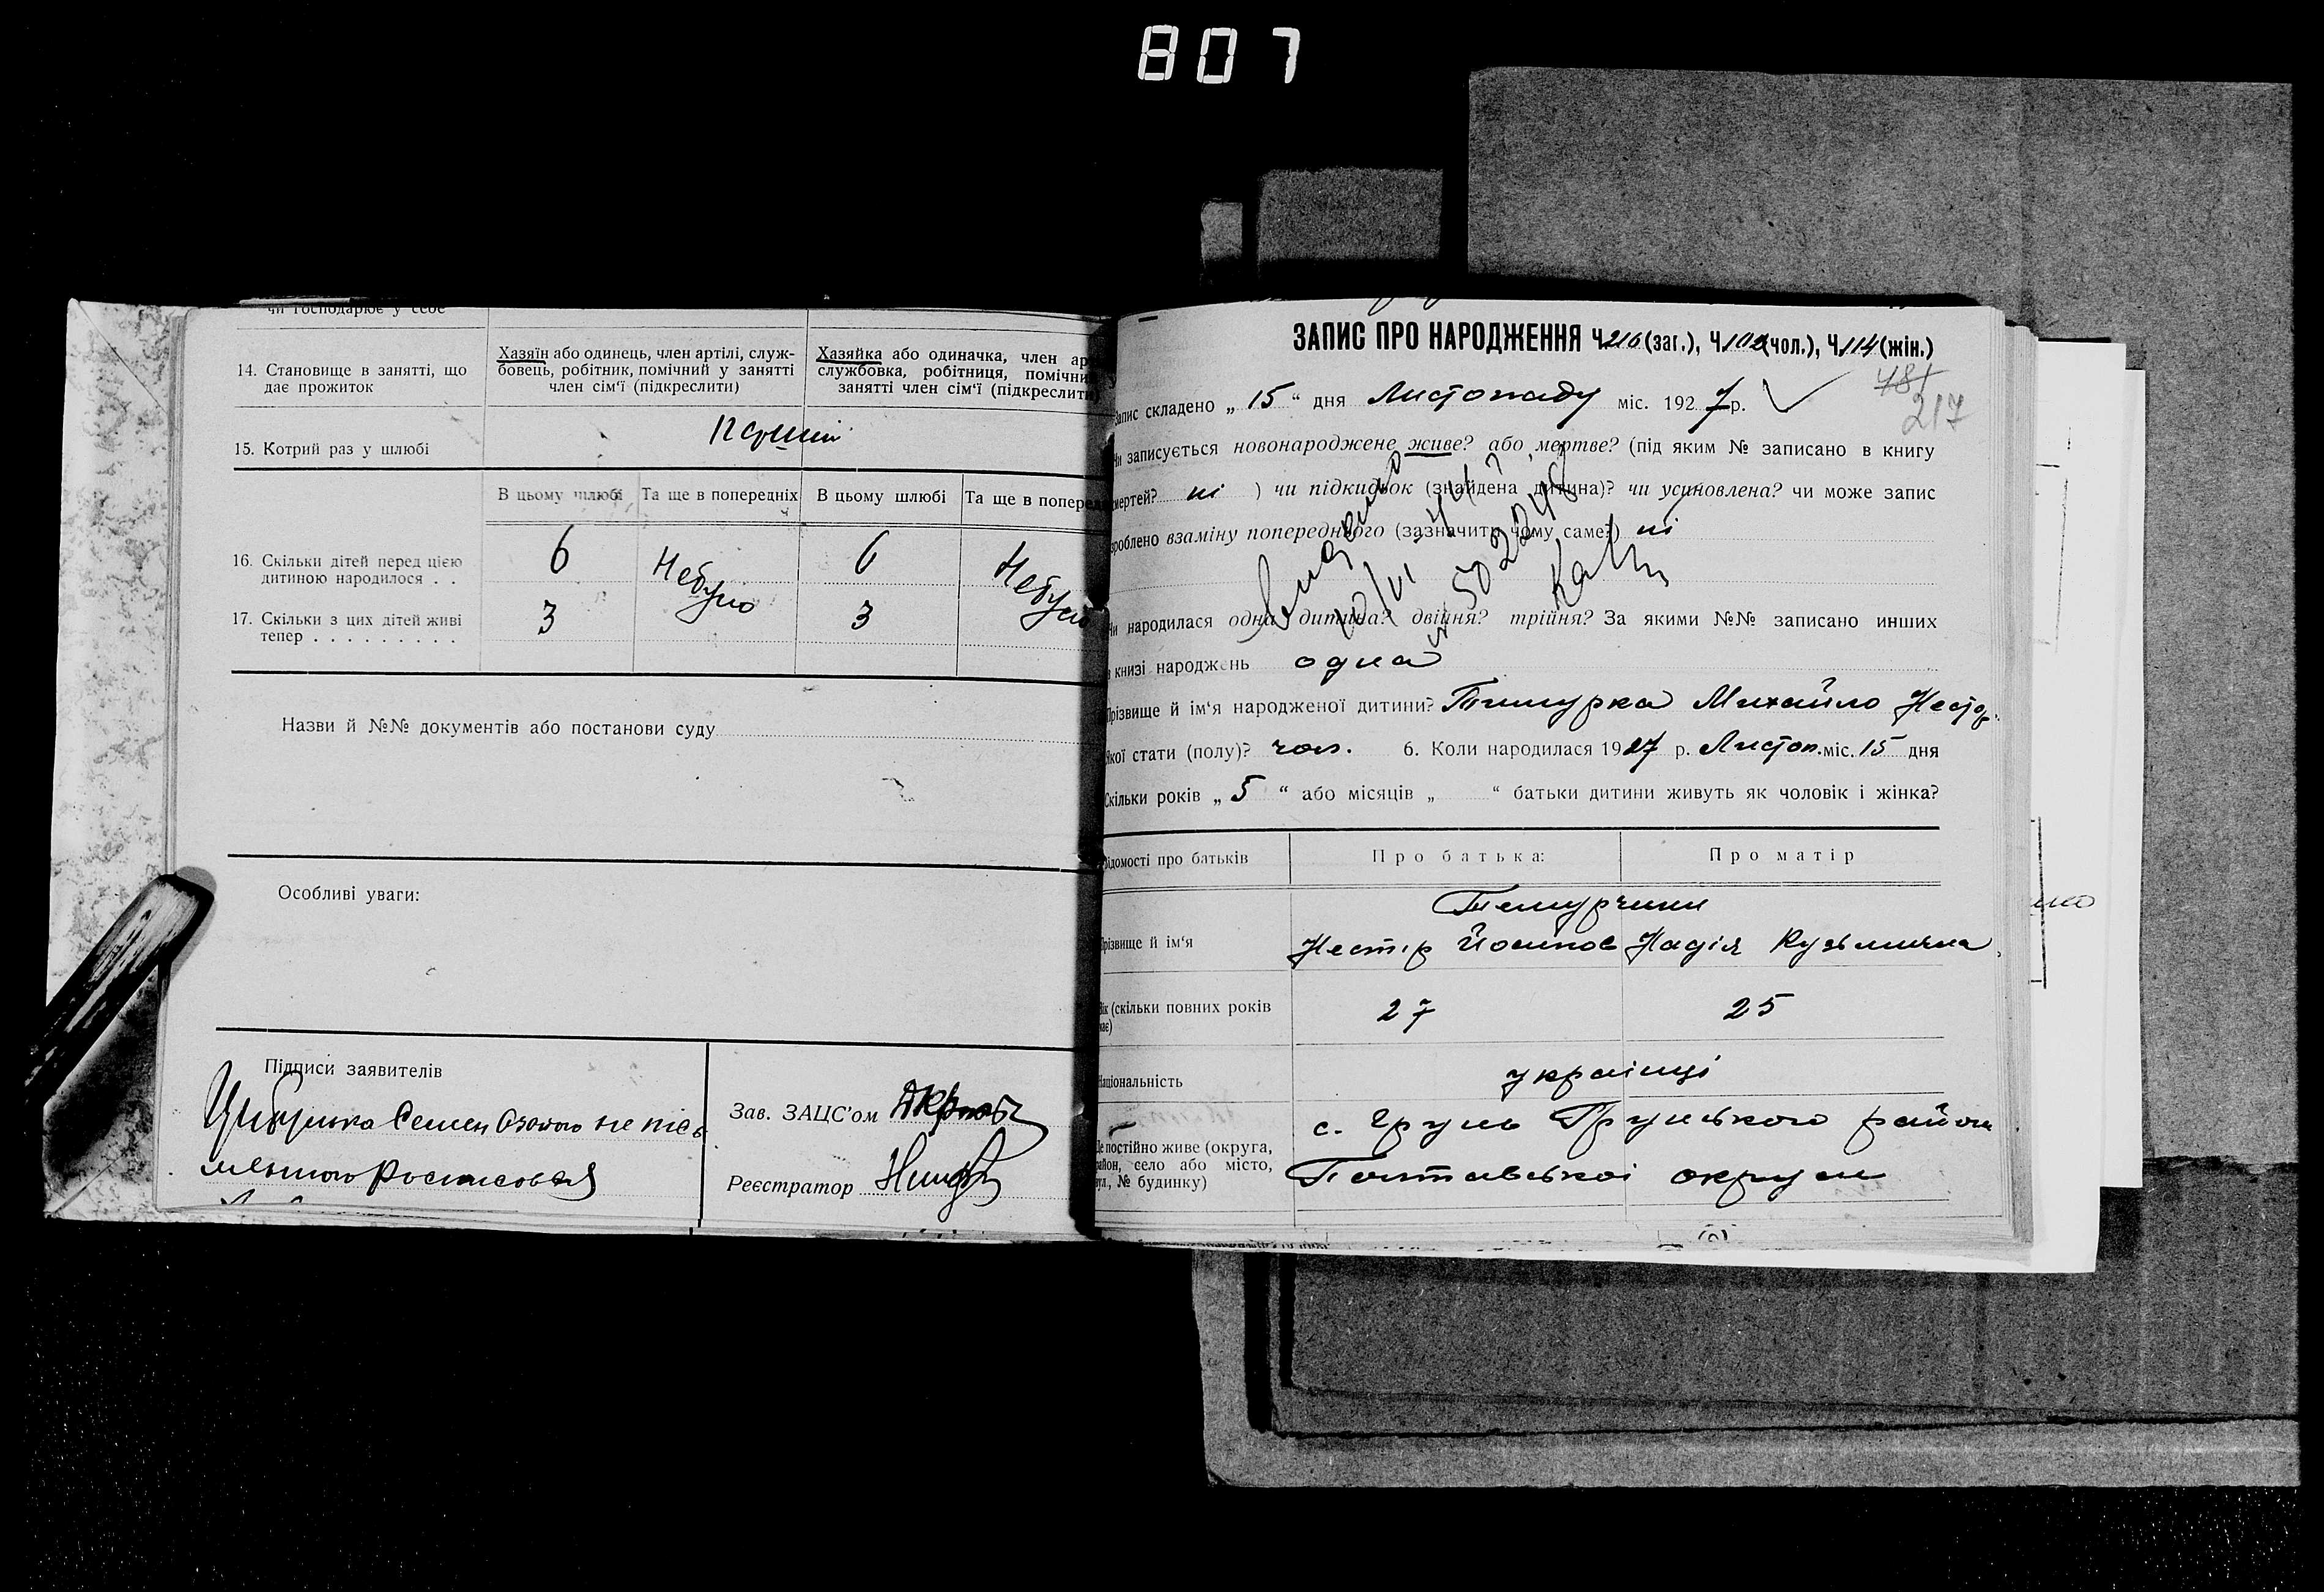 807
чи господарює у себе
14. Становище в занятті, що дає прожиток
Хазяїн або одинець, член артілі, службовець, робітник, помічний у занятті член сім'ї (підкреслити)
Хазяйка або одиначка, член ар
службовка, робітниця, помічни
занятті член сім'ї (підкреслити)
15. Котрий раз у шлюбі
Перший
В цьому шлюбі Та ще в попередніх В цьому шлюбі Та ще в поперед
16. Скільки дітей перед цією дитиною народилося . .
6 Небуло 6 Небуло
17. Скільки з цих дітей живі тепер . . . . . . . . .
3 3
Назви й №№ документів або постанови суду
Особливі уваги:
Підписи заявителів
Семен не пись
менного
Зав. ЗАЦС'ом
Реєстратор
ЗАПИС ПРО НАРОДЖЕННЯ Ч. 216 (заг.), Ч. 102 (чол.), Ч. 114 (жін.)
481
217
Запис складено „ 15 “ дня Листопаду міс. 192 7 р.
Чи записується новонароджене живе? або мертве? (під яким № записано в книгу
смертей? ні ) чи підкидьок (знайдена дитина)? чи усиновлена? чи може запис
зроблено взаміну попереднього (зазначити чому саме?) ні
Чи народилася одна дитина? двійня? трійня? За якими №№ записано инших
в книзі народжень одна
Прізвище й ім'я народженої дитини? Михайло Нестор.
Якої стати (полу)? чол. 6. Коли народилася 1927 р. Листоп. міс. 15 дня
Скільки років „ 5 “ або місяців „ “ батьки дитини живуть як чоловік і жінка?
Відомості про батьків Про батька: Про матір
Прізвище й ім'я
Нестір Йосипов Надія Кузьмична
Вік (скільки повних років має)
27 25
Національність
українці
Де постійно живе (округа, район, село або місто, вул., № будинку)
с. Грунь Грунського району
Полтавської округи